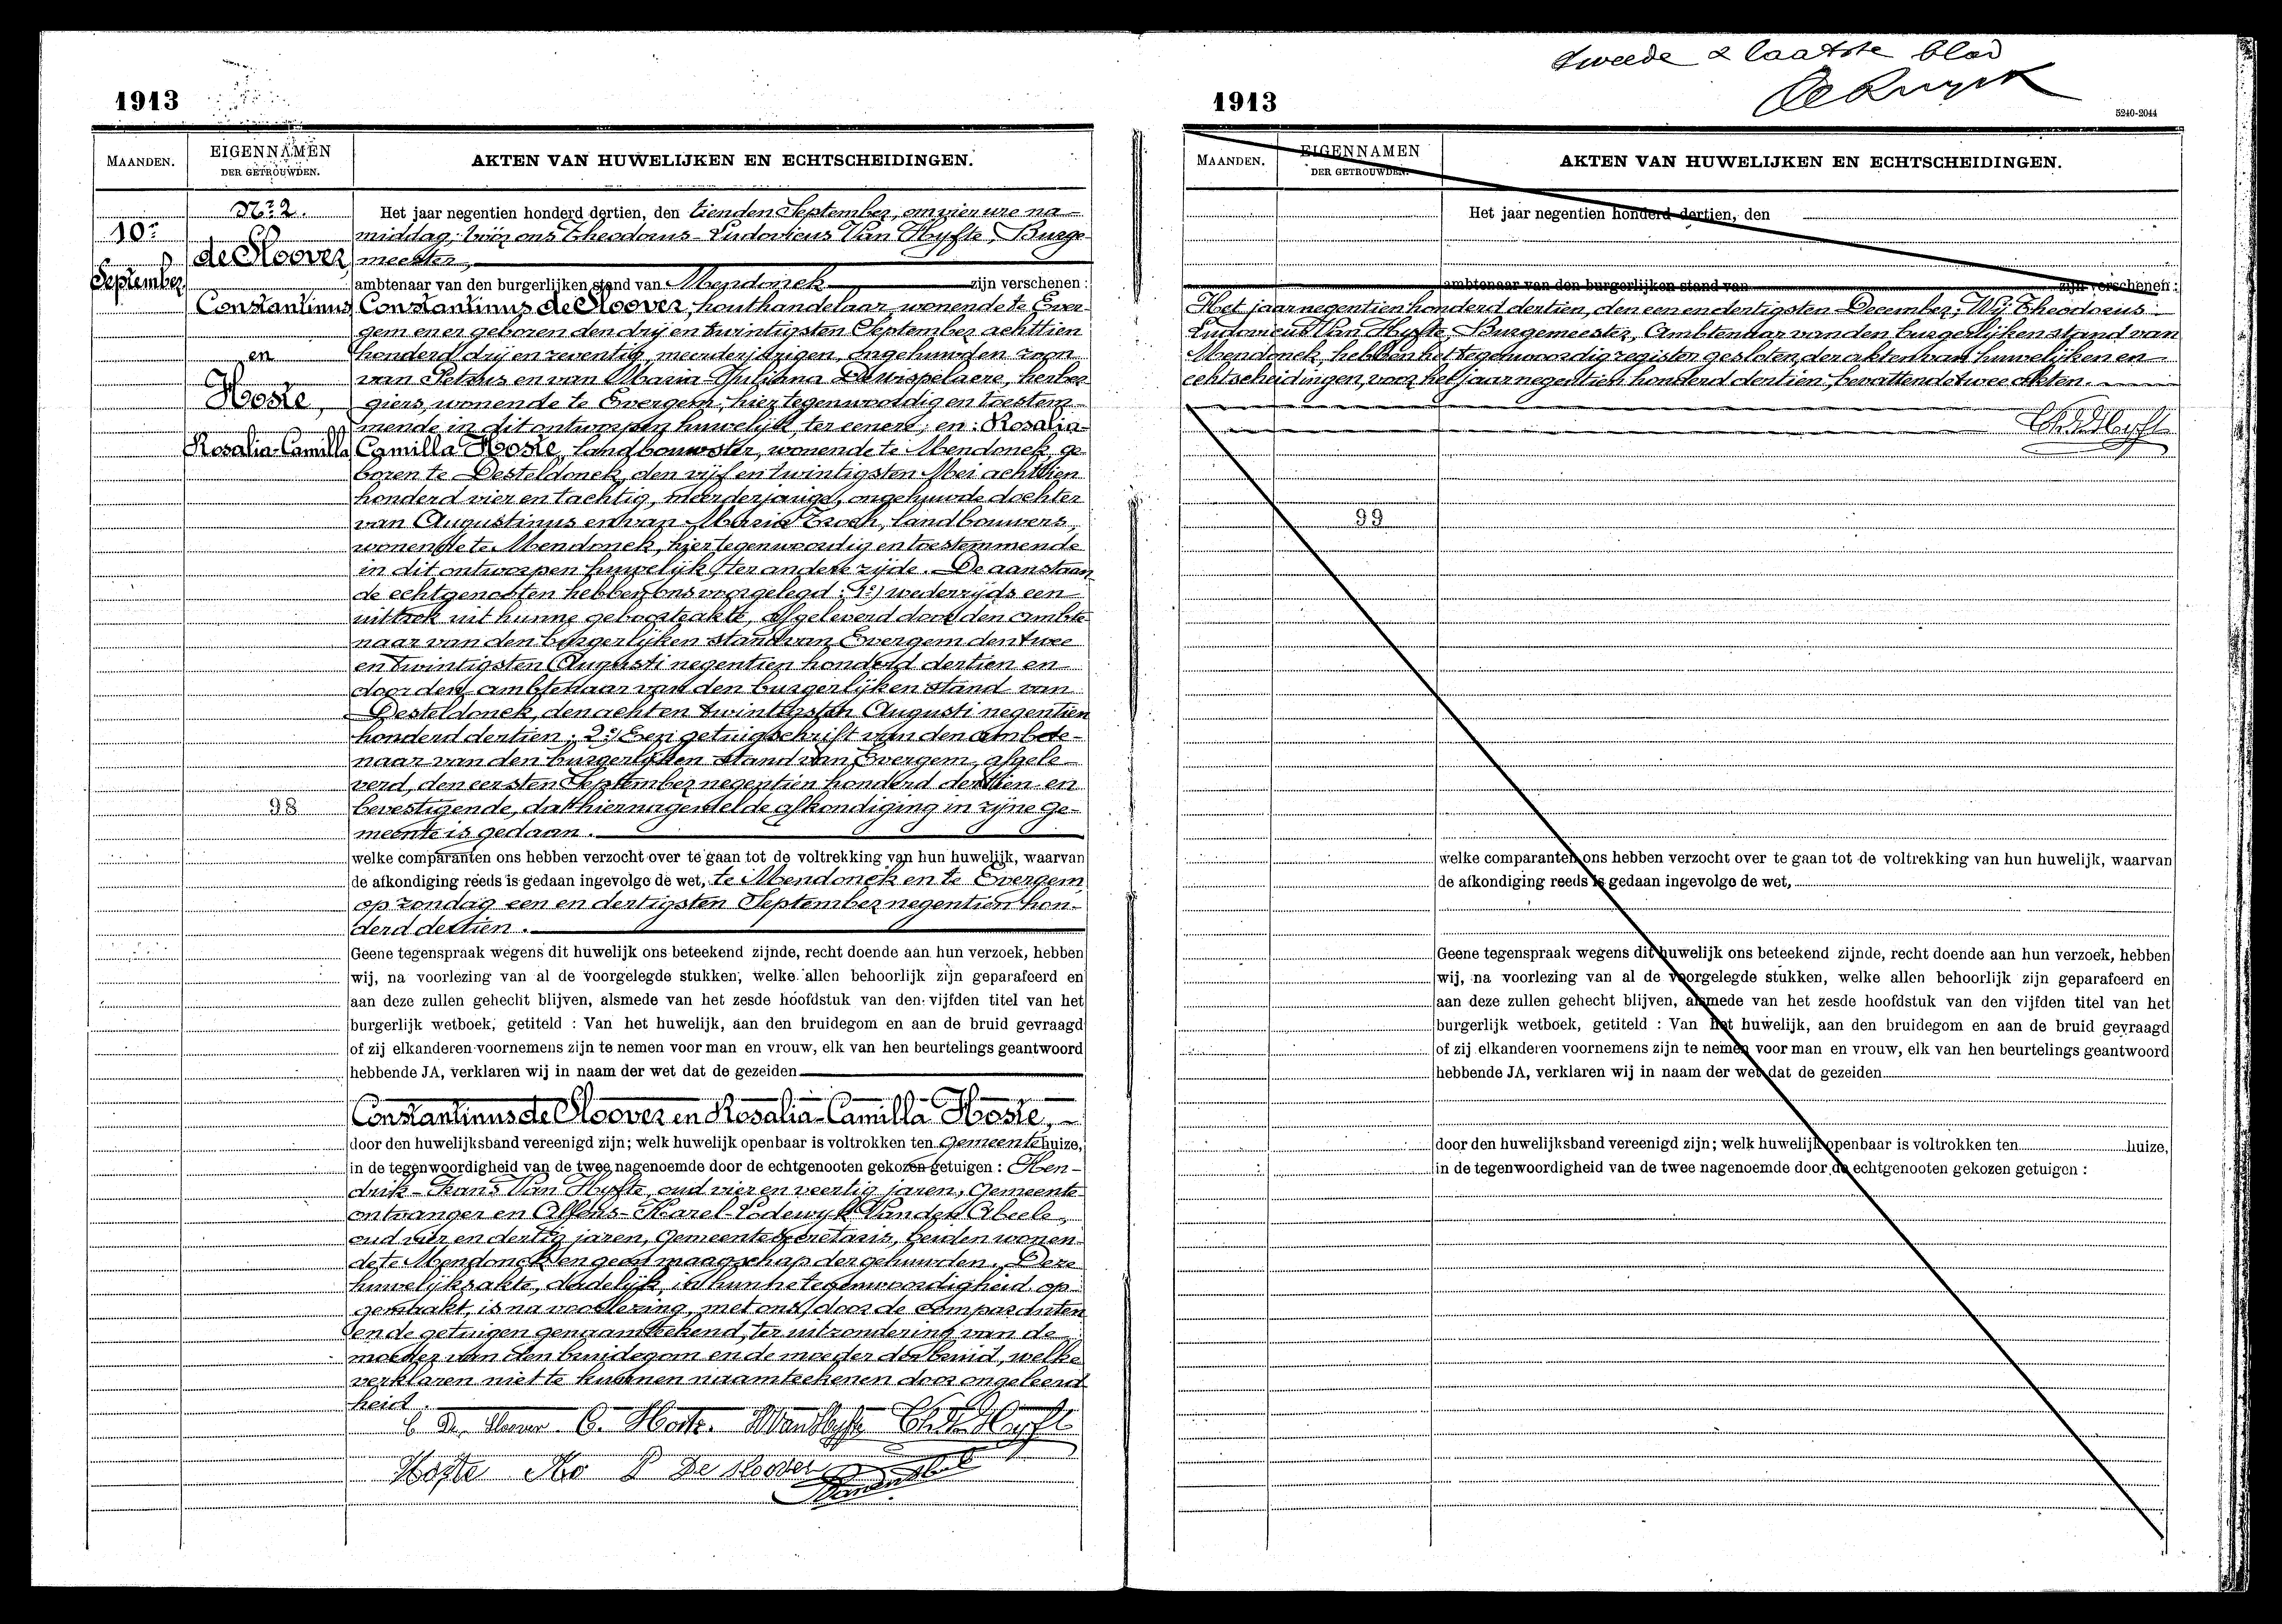 1913
MAANDEN.
EIGENNAMEN
DER GETROUWDEN.
AKTEN VAN HUWELIJKEN EN ECHTSCHEIDINGEN.
10r
September
Nr 2.
de Sloover,
Constantinus
en
Hoste,
Rosalia-Camilla
98
Het jaar negentien honderd dertien, den tienden September, om vier ure na-
middag; vóór ons Theodorus-Ludovicus Van Hyfte, Burge-
meester,
ambtenaar van den burgerlijken stand van Mendonck zijn verschenen:
Constantinus de Sloover, houthandelaar, wonende te Ever-
gem en er geboren den drij en twintigsten September achttien
honderd drij en zeventig, meerderjarigen, ongehuwden zoon
van Petrus en van Maria-Juliana Dewispelaere, herber-
giers, wonende te Evergem, hier tegenwoordig en toestem-
mende in dit ontworpen huwelijk, ter eenere; en: Rosalia-
Camilla Hoste, landbouwster, wonende te Mendonck, ge-
boren te Desteldonck, den vijf en twintigsten Mei achttien
honderd vier en tachtig, meerderjarige, ongehuwde dochter
van Augustinus en van Maria Troch, landbouwers,
wonende te Mendonck, hier tegenwoordig en toestemmende
in dit ontworpen huwelijk, ter andere zijde. De aanstaan-
de echtgenooten hebben ons voorgelegd: 1º) wederzijds een
uittrek uit hunne geboorteakte, afgeleverd door den ambte-
naar van den burgerlijken stand van Evergem den twee
en twintigsten Augusti negentien honderd dertien en
door den ambtenaar van den burgerlijken stand van
Desteldonck, den acht en twintigsten Augusti negentien
honderd dertien; 2º) Een getuigschrift van den ambte-
naar van den burgerlijken stand van Evergem, afgele-
verd, den eersten September negentien honderd dertien en
bevestigende, dat hiernagemelde afkondiging in zijne ge-
meente is gedaan.
welke comparanten ons hebben verzocht over te gaan tot de voltrekking van hun huwelijk, waarvan
de afkondiging reeds is gedaan ingevolge de wet, te Mendonck en te Evergem
op zondag een en dertigsten September negentien hon-
derd dertien.
Geene tegenspraak wegens dit huwelijk ons beteekend zijnde, recht doende aan hun verzoek, hebben
wij, na voorlezing van al de voorgelegde stukken, welke allen behoorlijk zijn geparafeerd en
aan deze zullen gehecht blijven, alsmede van het zesde hoofdstuk van den vijfden titel van het
burgerlijk wetboek, getiteld : Van het huwelijk, aan den bruidegom en aan de bruid gevraagd
of zij elkanderen voornemens zijn te nemen voor man en vrouw, elk van hen beurtelings geantwoord
hebbende JA, verklaren wij in naam der wet dat de gezeiden
Constantinus de Sloover en Rosalia-Camilla Hoste,
door den huwelijksband vereenigd zijn; welk huwelijk openbaar is voltrokken ten Gemeentehuize,
in de tegenwoordigheid van de twee nagenoemde door de echtgenooten gekozen getuigen : Hen-
drik-Frans Van Hyfte, oud vier en veertig jaren, Gemeente-
ontvanger en Alfons-Karel-Lodewyk Vanden Abeele,
oud vier en dertig jaren, Gemeentesecretaris, beiden wonen-
de te Mendonck en geen maagschap der gehuwden. Deze
huwelijksakte, dadelijk, in hunne tegenwoordigheid op-
gemaakt, is na voorlezing, met ons, door de comparanten
en de getuigen genaamteekend, ter uitzondering van de
moeder van den bruidegom en de moeder der bruid, welke
verklaren niet te kunnen naamteekenen door ongeleerd-
heid.
C De Sloover C. Hoste. HVanHyfte
Hoste P De Sloover
tweede & laatste blad
1913
5240-2044
MAANDEN.
EIGENNAMEN
DER GETROUWDEN.
AKTEN VAN HUWELIJKEN EN ECHTSCHEIDINGEN.
Het jaar negentien honderd dertien, den
ambtenaar van den burgerlijken stand van zijn verschenen :
Het jaar negentien honderd dertien, den een en dertigsten December; Wij Theodorus-
Ludovicus Van Hyfte, Burgemeester, Ambtenaar van den burgerlijken stand van
Mendonck, hebben het tegenwoordig register gesloten, der akten van huwelijken en
echtscheidingen, voor het jaar negentien honderd dertien, bevattende twee akten.
99
welke comparanten ons hebben verzocht over te gaan tot de voltrekking van hun huwelijk, waarvan
de afkondiging reeds is gedaan ingevolge de wet,
Geene tegenspraak wegens dit huwelijk ons beteekend zijnde, recht doende aan hun verzoek, hebben
wij, na voorlezing van al de voorgelegde stukken, welke allen behoorlijk zijn geparafeerd en
aan deze zullen gehecht blijven, alsmede van het zesde hoofdstuk van den vijfden titel van het
burgerlijk wetboek, getiteld : Van het huwelijk, aan den bruidegom en aan de bruid gevraagd
of zij elkanderen voornemens zijn te nemen voor man en vrouw, elk van hen beurtelings geantwoord
hebbende JA, verklaren wij in naam der wet dat de gezeiden
door den huwelijksband vereenigd zijn; welk huwelijk openbaar is voltrokken ten huize,
in de tegenwoordigheid van de twee nagenoemde door de echtgenooten gekozen getuigen :